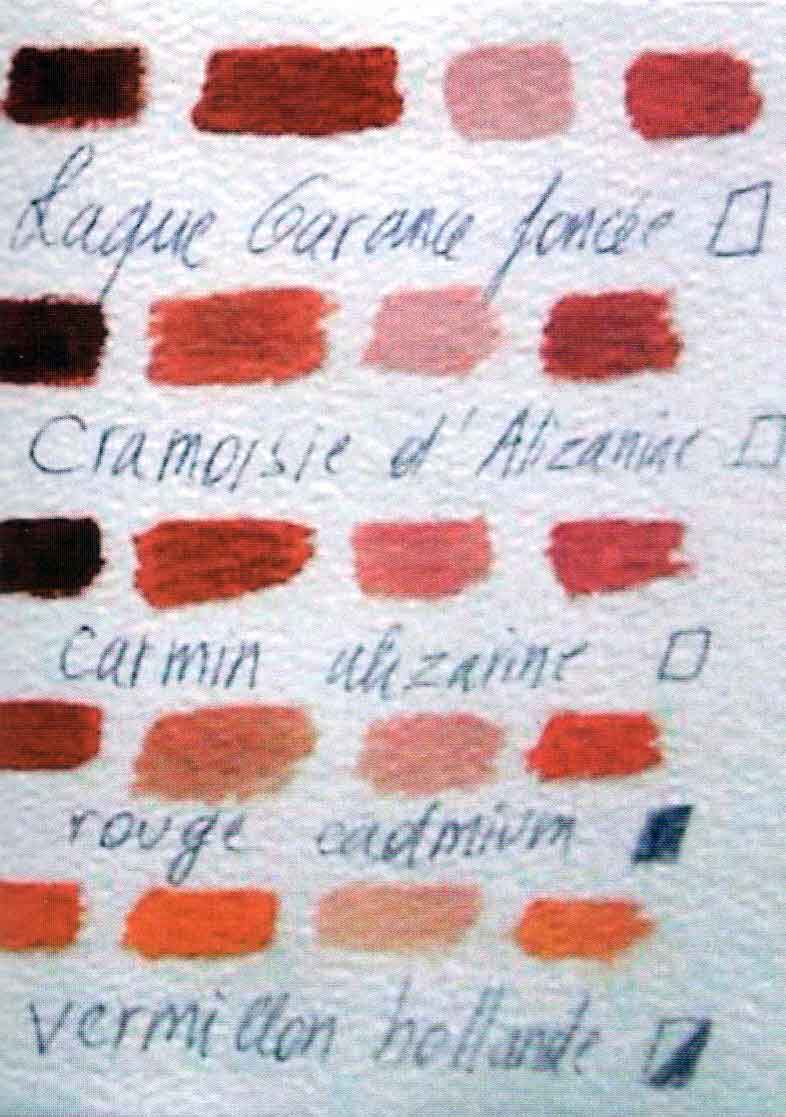 Laque Garance foncée
Cramoisie d'Alizarine
Carmin alizarine
rouge cadmium
vermillon hollande